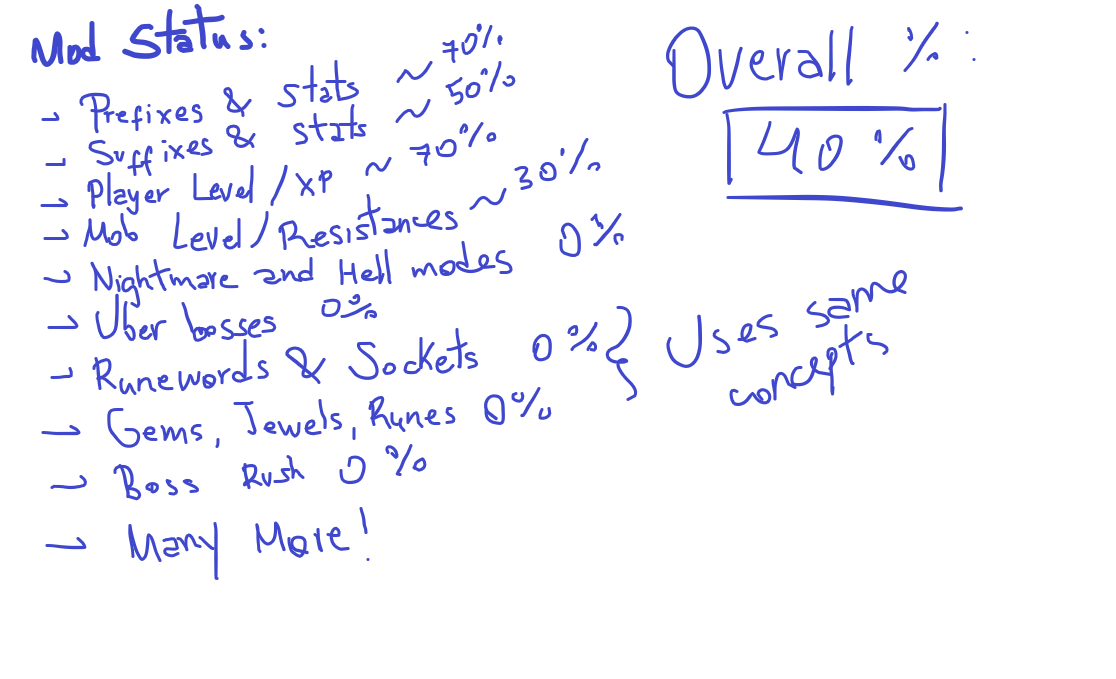 Mod Status:
→ Prefixes & stats ~ 70%
→ Suffixes & stats ~ 50%
→ Player Level/XP ~ 70%
→ Mob Level/Resistances ~ 30%
→ Nightmare and Hell modes 0%
→ Uber bosses 0%
→ Runewords & Sockets 0% } Uses same concepts
→ Gems, Jewels, Runes 0%
→ Boss Rush 0%
→ Many More!
Overall % :
40%